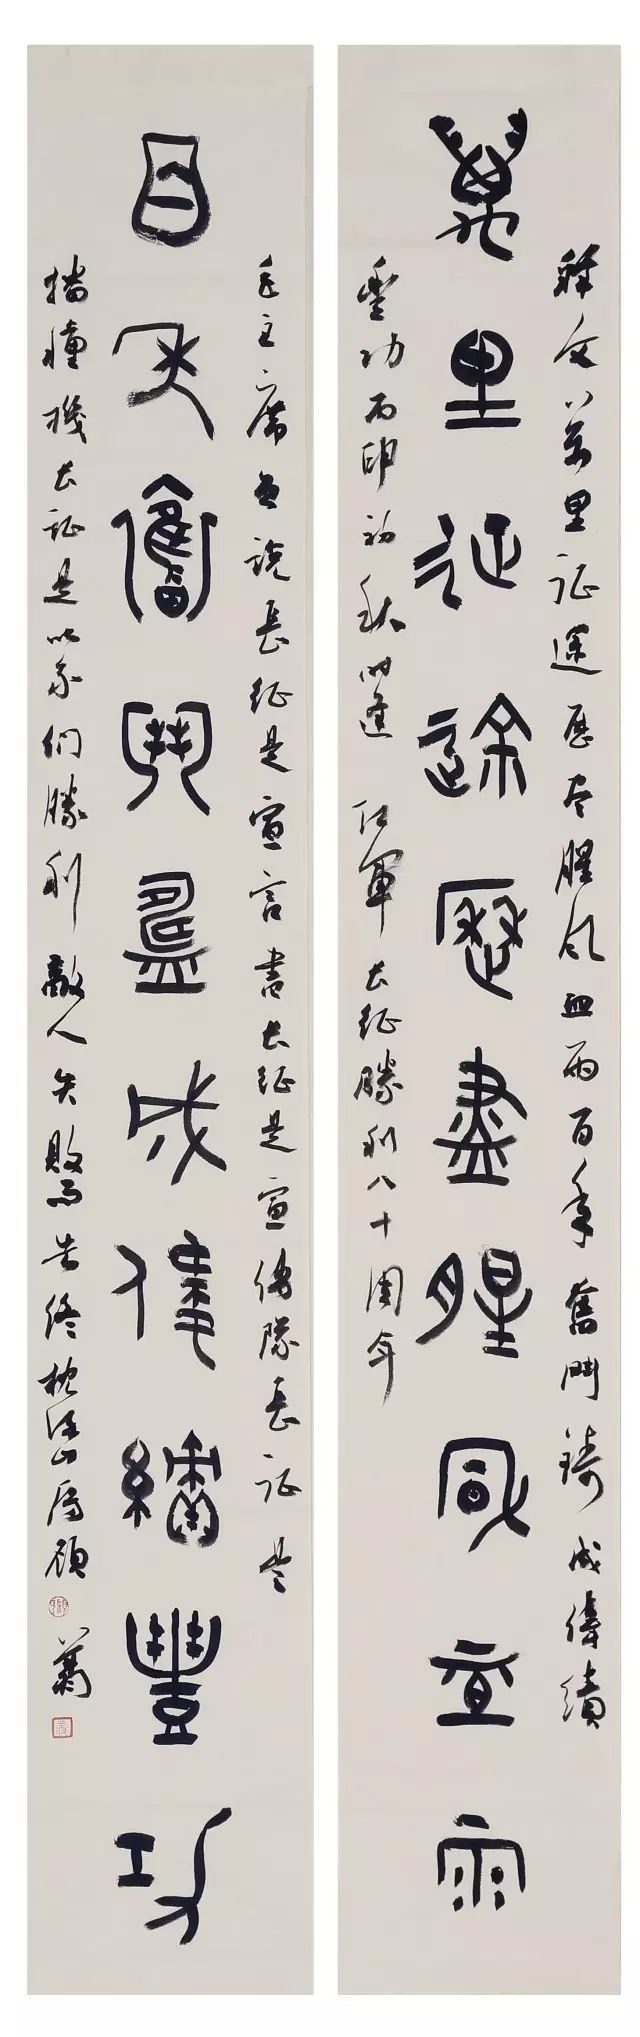 釋文萬里征途歷盡腥風血雨百年奮鬥鑄成偉績
萬里征途歷盡腥風血雨
豐功丙申初秋時逢紅軍長征勝利八十周年
毛主席曾說長征是宣言書長征是宣傳隊長征是
百年奮鬥鑄成偉績豐功
播種機長征是以我們勝利敵人失敗而告終